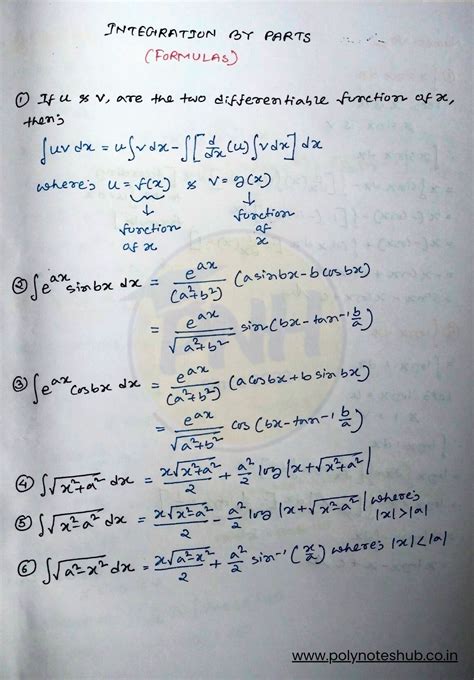 INTEGRATION BY PARTS
(FORMULAS)
① If u & v, are the two differentiable function of x,
then;
∫uv dx = u∫v dx - ∫[d/dx (u) ∫v dx] dx
where; u = f(x) & v = g(x)
↓ ↓
function function
of x of
x
② ∫e^ax sin bx dx = e^ax/(a²+b²) (a sin bx - b cos bx)
= e^ax/√(a²+b²) sin (bx - tan⁻¹ b/a)
③ ∫e^ax cos bx dx = e^ax/(a²+b²) (a cos bx + b sin bx)
= e^ax/√(a²+b²) cos (bx - tan⁻¹ b/a)
④ ∫√(x²+a²) dx = x√(x²+a²)/2 + a²/2 log |x+√(x²+a²)|
⑤ ∫√(x²-a²) dx = x√(x²-a²)/2 - a²/2 log |x+√(x²-a²)| where; |x|>|a|
⑥ ∫√(a²-x²) dx = x√(a²-x²)/2 + a²/2 sin⁻¹ (x/a) where; |x|<|a|
PNH
www.polynoteshub.co.in